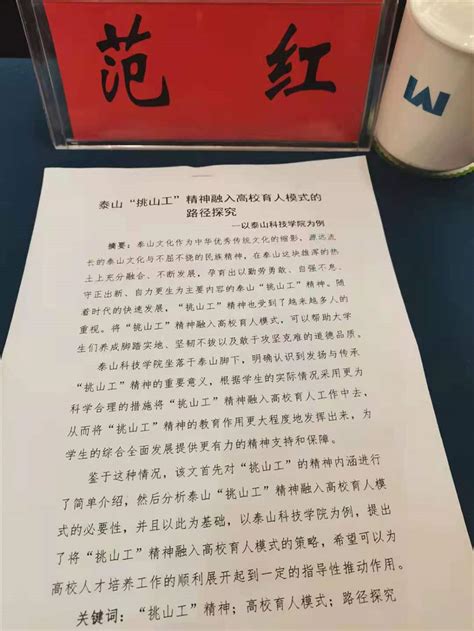 范红
泰山“挑山工”精神融入高校育人模式的
路径探究
—以泰山科技学院为例
摘要：泰山文化作为中华优秀传统文化的缩影，源远流
长的泰山文化与不屈不挠的民族精神，在泰山这块雄厚的热
土上充分融合、不断发展，孕育出以勤劳勇敢、自强不息、
守正出新、自力更生为主要内容的泰山“挑山工”精神。随
着时代的快速发展，“挑山工”精神也受到了越来越多人的
重视。将“挑山工”精神融入高校育人模式，可以帮助大学
生们养成脚踏实地、坚韧不拔以及敢于攻坚克难的道德品质。
泰山科技学院坐落于泰山脚下，明确认识到发扬与传承
“挑山工”精神的重要意义，根据学生的实际情况采用更为
科学合理的措施将“挑山工”精神融入高校育人工作中去，
从而将“挑山工”精神的教育作用更大程度地发挥出来，为
学生的综合全面发展提供更有力的精神支持和保障。
鉴于这种情况，该文首先对“挑山工”的精神内涵进行
了简单介绍，然后分析泰山“挑山工”精神融入高校育人模
式的必要性，并且以此为基础，以泰山科技学院为例，提出
了将“挑山工”精神融入高校育人模式的策略，希望可以为
高校人才培养工作的顺利展开起到一定的指导性推动作用。
关键词：“挑山工”精神；高校育人模式；路径探究